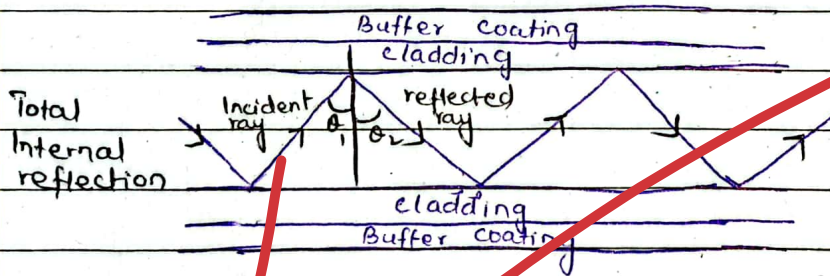 Buffer coating
cladding
Total
Internal
reflection
Incident
ray
θ1
θ2
reflected
ray
cladding
Buffer coating